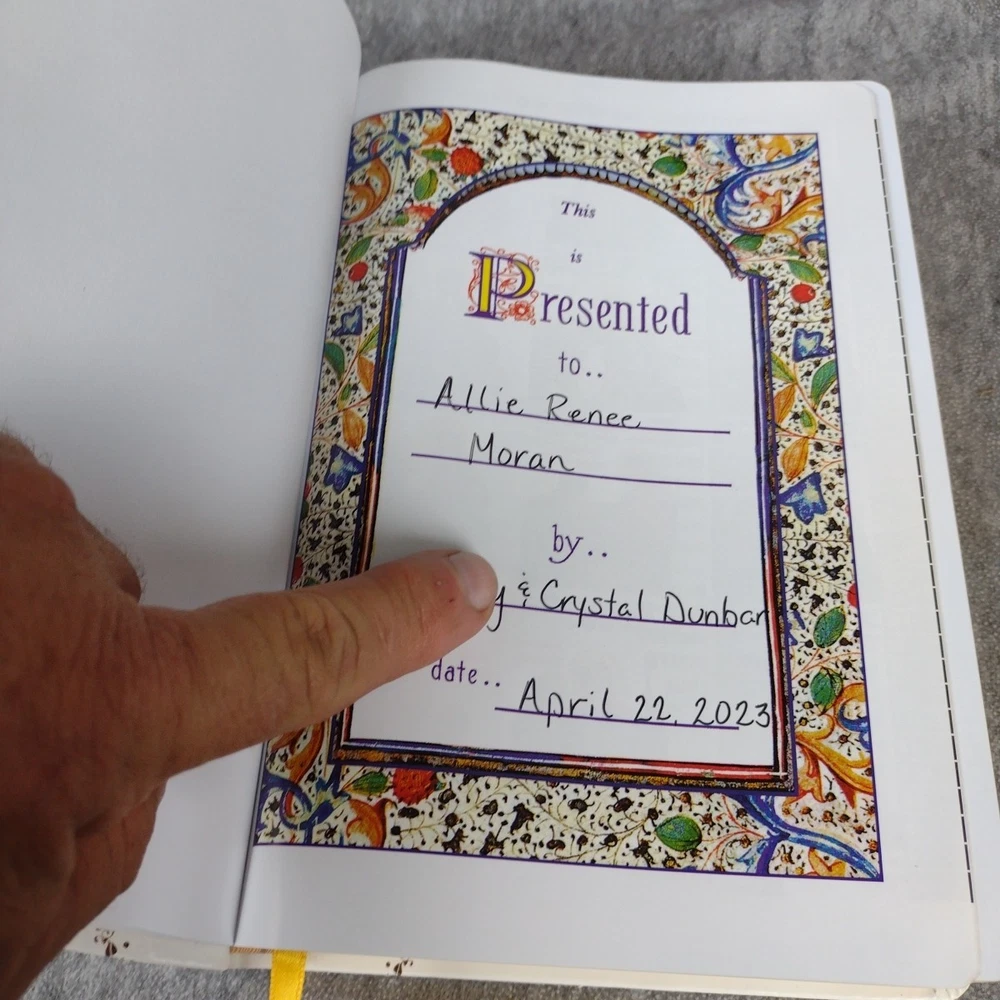 This
is
Presented
to..
Allie Renee
Moran
by..
& Crystal Dunbar
date.. April 22, 2023